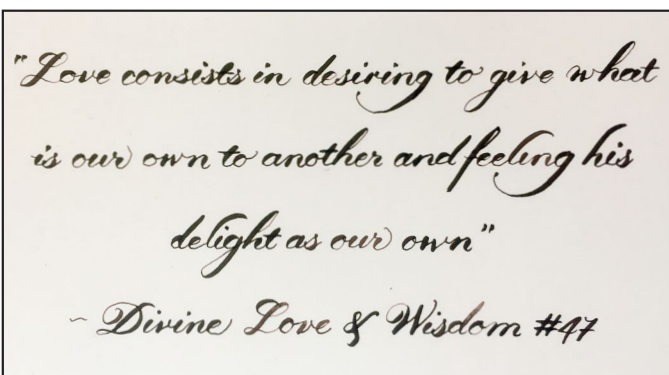 "Love consists in desiring to give what
is our own to another and feeling his
delight as our own"
~ Divine Love & Wisdom #47